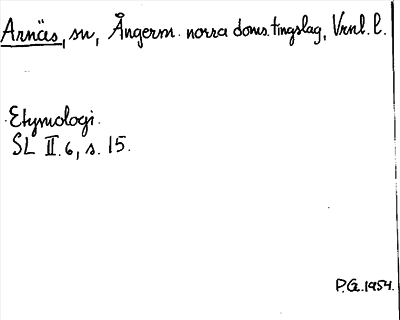 Arnäs, sn, Ångerm. norra doms. tingslag, Vrnl. l.
Etymologi.
SL II.6, s. 15.
P.G. 1954.